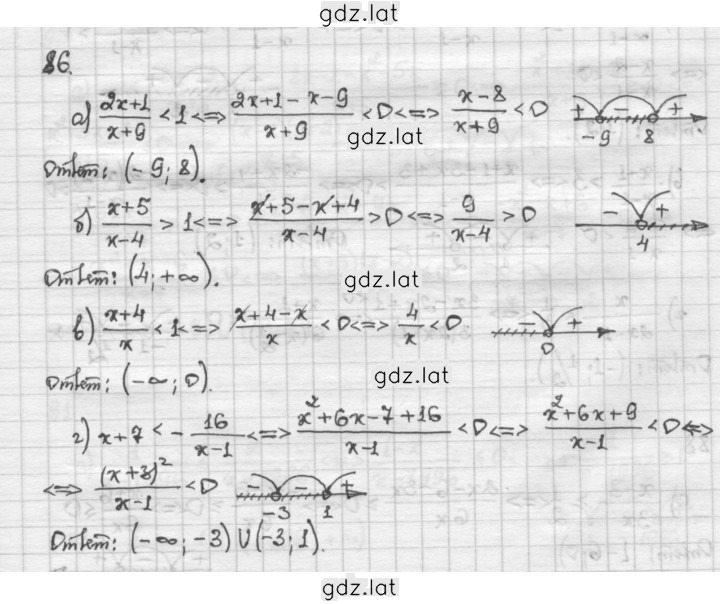 gdz.lat
86.
а) (2x+1)/(x+9) < 1 <=> (2x+1-x-9)/(x+9) < 0 <=> (x-8)/(x+9) < 0 + - + -9 8
gdz.lat
Ответ: (-9; 8).
б) (x+5)/(x-4) > 1 <=> (x+5-x+4)/(x-4) > 0 <=> 9/(x-4) > 0 - + 4
Ответ: (4; +∞).
gdz.lat
в) (x+4)/x < 1 <=> (x+4-x)/x < 0 <=> 4/x < 0 - + 0
Ответ: (-∞; 0).
gdz.lat
г) x+7 < - 16/(x-1) <=> (x²+6x-7+16)/(x-1) < 0 <=> (x²+6x+9)/(x-1) < 0 <=>
<=> (x+3)²/(x-1) < 0 - - + -3 1
Ответ: (-∞; -3) U (-3; 1).
gdz.lat